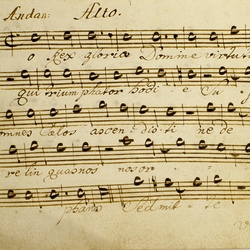 Andan: Alto.
o Rex gloriæ Domine virtutu
qui triumphator hodi e Su
omnes Cælos ascen dis ti ne de
relin quas nos or
phanos Sed mit te